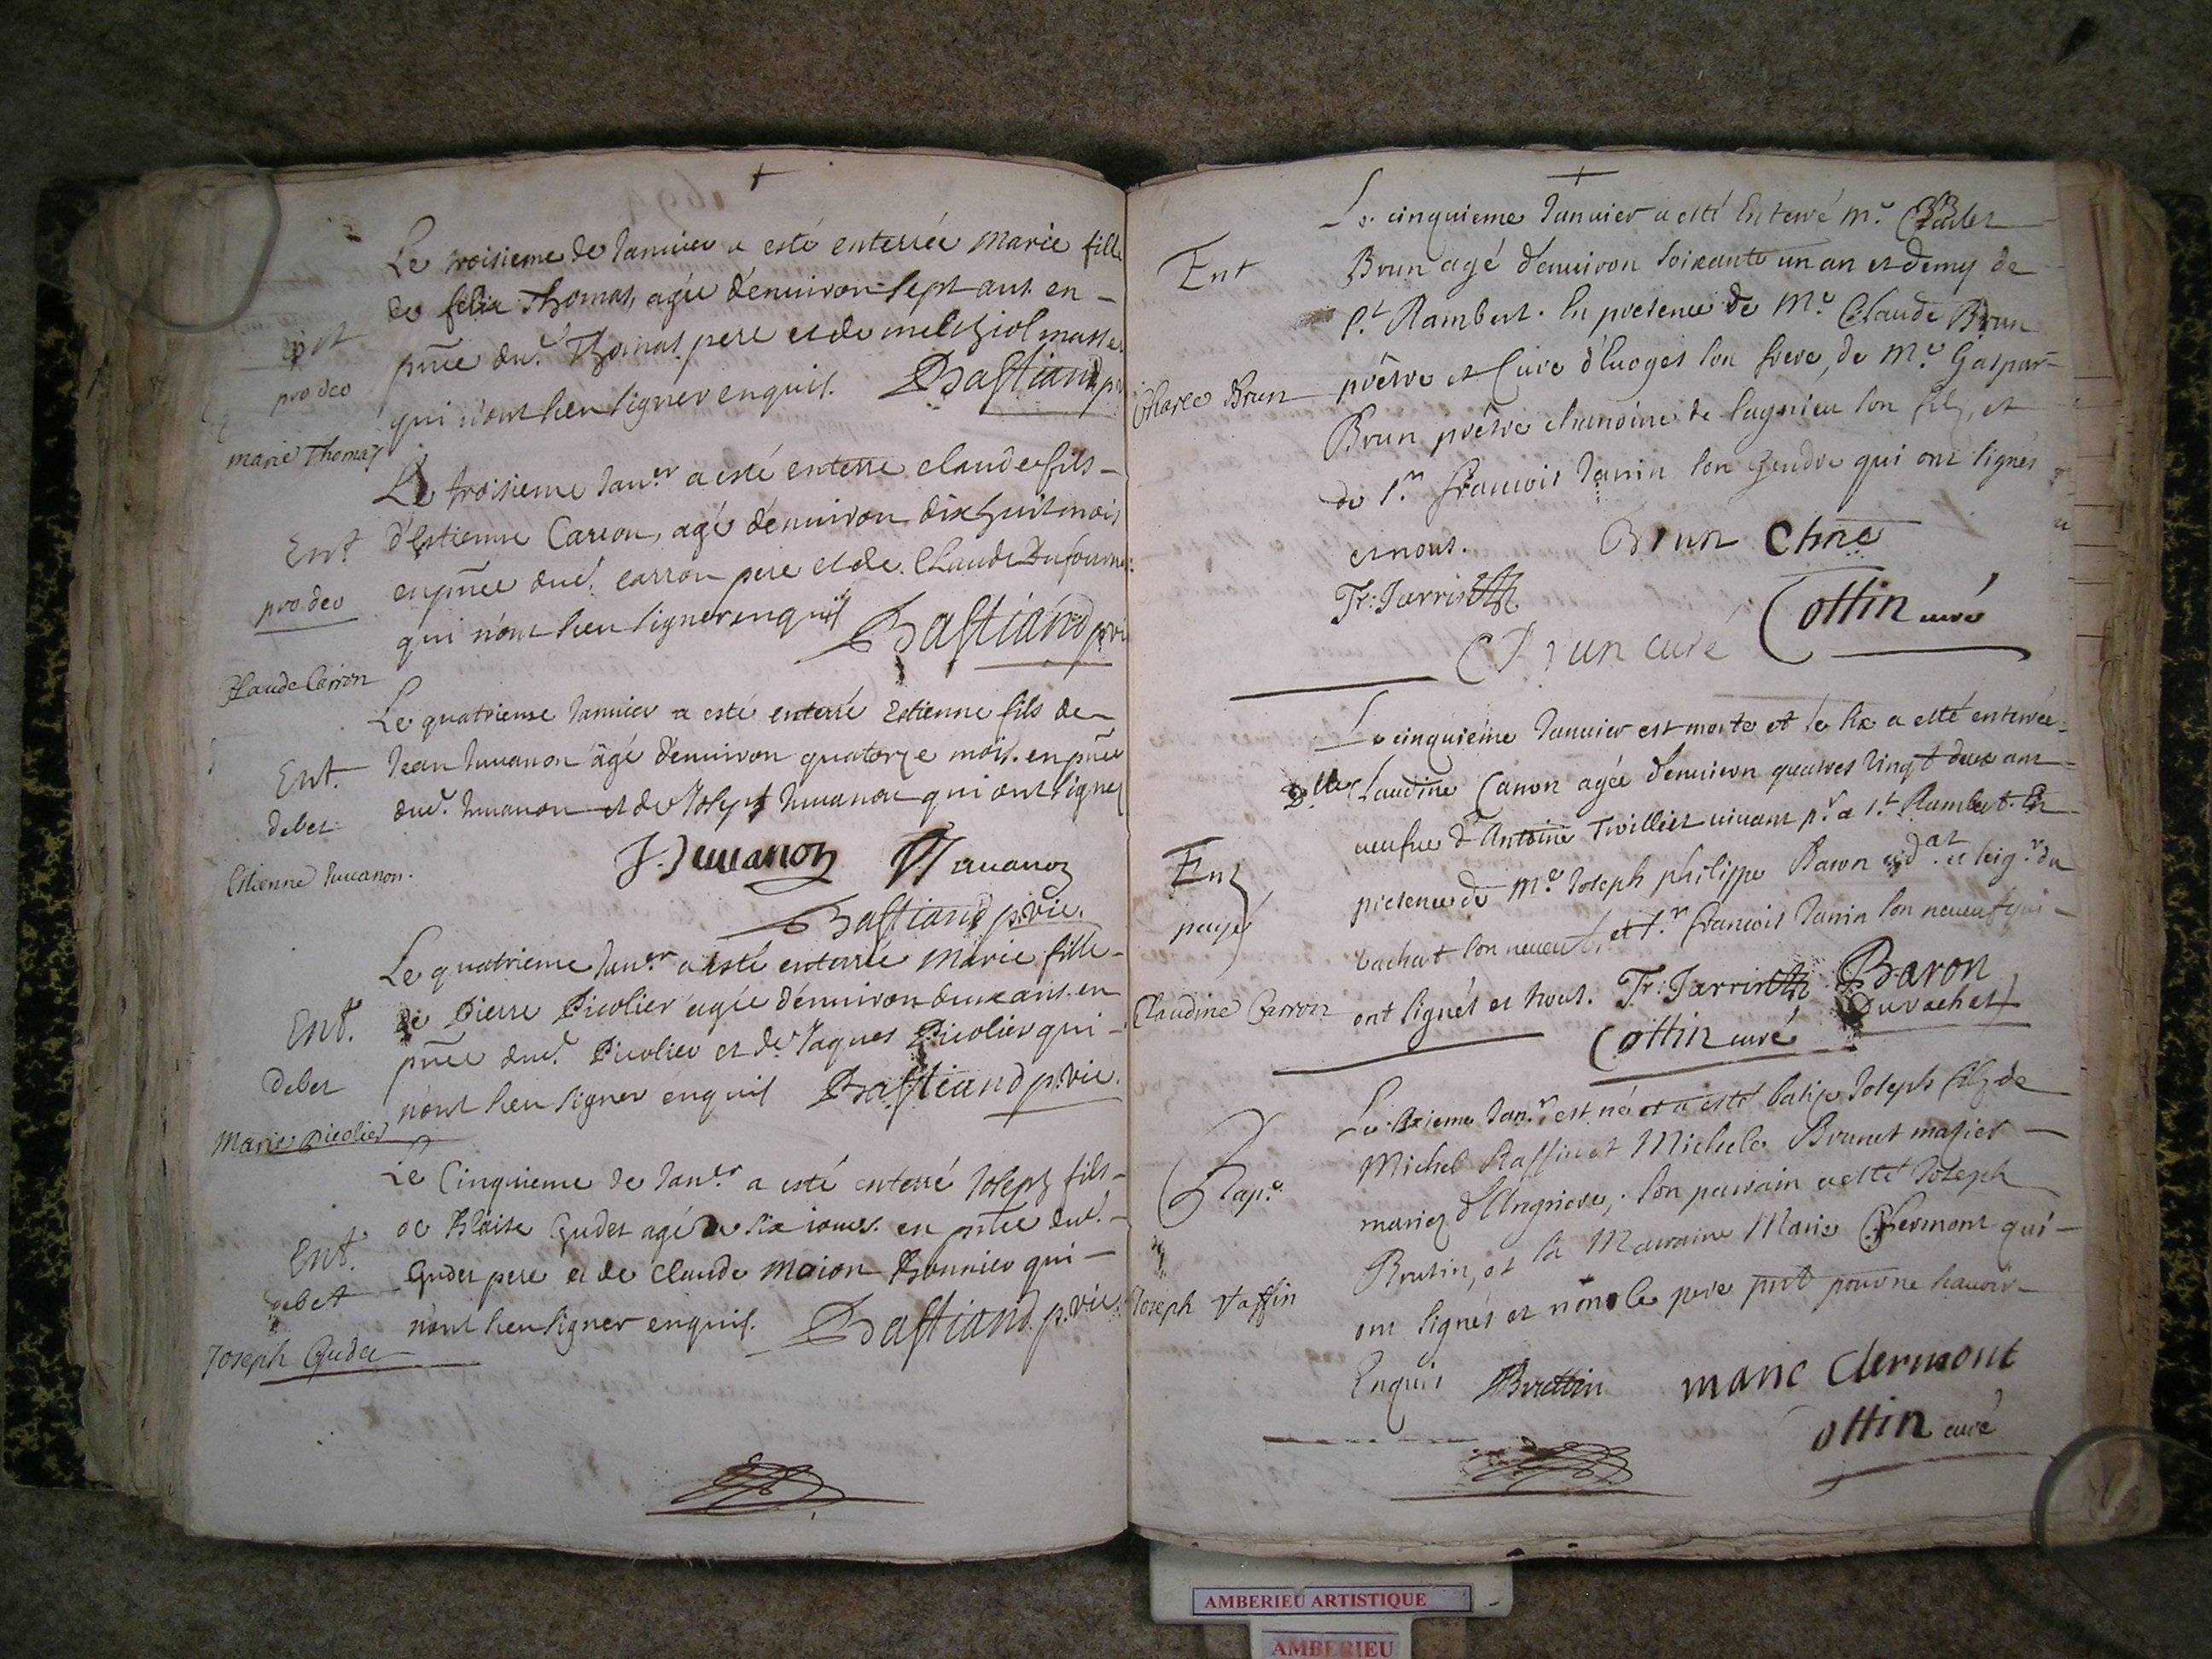 Le troisieme de Januier a esté enterrée Marie fille
de felix Thomas, agée d'enuiron sept ans. en -
pnce dud. Thomas pere et de melchiol masse
qui n'ont sceu signer enquis. Bastiand
Ent
pro deo
marie Thomas
Le troisieme Janer a esté enterré claude fils -
d'Estienne Carron, agé d'enuiron dix huit mois
en pnce dud. carron pere et de Claude Dufour
qui n'ont sceu signer enquis Bastiand p.vi
Ent
pro deo
Claude Carron
Le quatrieme Januier a esté enterré Estienne fils de
Jean Juuanon agé d'enuiron quatorze mois. en pnce
dud. Juuanon et de Joseph Juuanon qui ont signez
Ent.
debet
Estienne Juuanon.
J. Juuanon Juuanon
Bastiand p.vic.
Le quatrieme Janer a esté enterrée Marie fille -
de Pierre Picolier agée d'enuiron deux ans. en
pnce dud. Picolier et de Jaques Picolier qui -
n'ont sceu signer enquis Bastiand p.vic.
Ent.
debet
Marie Picolier
Le Cinquieme de Janer a esté enterré Joseph fils -
de Blaise Gudet agé de six iours. en pnce dud. -
Gudet pere et de Claude Moion Bonnier qui -
n'ont sceu signer enquis. Bastiand p.vic.
Ent.
debet
Joseph Gudet
Le cinquieme Januier a esté Enterré Mr. Charles
Brun agé d'enuiron soixante un an et demy de
St. Rambert. En presence de Mre Claude Brun
prêtre et Curé d'Euoges son frere, de Mre Gaspar
Brun prêtre chanoine de Lagnieu son filz, et
de Sr. francois Janin son Gendre qui ont signés
et nous. Brun Chne
Ent
Charle Brun
Fr: Jarrin
Brun curé Cottin curé
Le cinquiéme Januier est morte et le six a esté enterrée
Dlle Claudine Canon agée d'enuiron quatres vingt deux ans
veufue d'Antoine Tuillier viuant pr. a St. Rambert. En
presence de Mre Joseph philippe Baron et seigr. du
vachat son neueu, et Sr. francois Janin son neueuf qui -
ont signés et nous. Fr: Jarrin Baron
Duvachat
Cottin curé
Ent
payé
Claudine Carron
Le sixieme Janr. est né et a esté batisé Joseph filz de
Michel Raffin et Michele Brunet
mariez d'Angriere; son parrain a esté Joseph
Brutin, et la Marraine Marie Clermont qui -
ont signés et non le pere pnt pour ne scauoir
Enquis Bruttin marie Clermont
Cottin curé
Bap.e
Joseph Raffin
AMBERIEU ARTISTIQUE
AMBERIEU